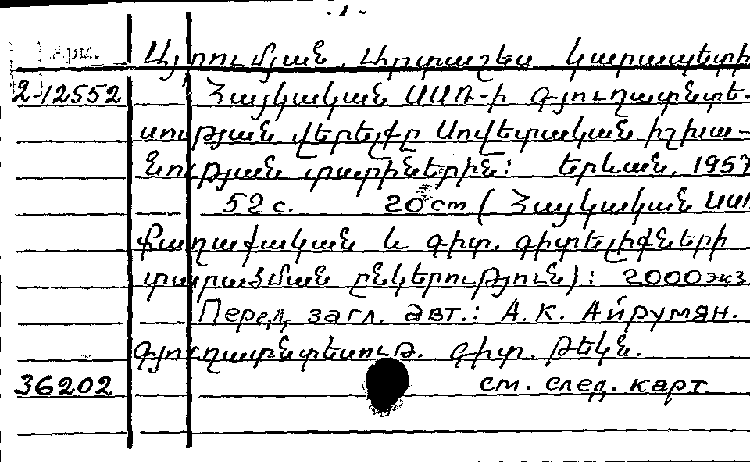 -1-
Арм.
Այրումյան, Արտաշես Կարապետի
2-12552 Հայկական ՍՍՌ-ի գյուղատնտե-
սության վերելքը Սովետական իշխա-
նության տարիներին: Երևան, 1957
52 с. 20 cm (Հայկական ՍՍՌ
քաղաքական և գիտ. գիտելիքների
տարածման ընկերություն): 2000 экз.
Перед загл. авт.: А.К. Айрумян.
գյուղատնտեսութ. գիտ. թեկն.
36202 см. след. карт.